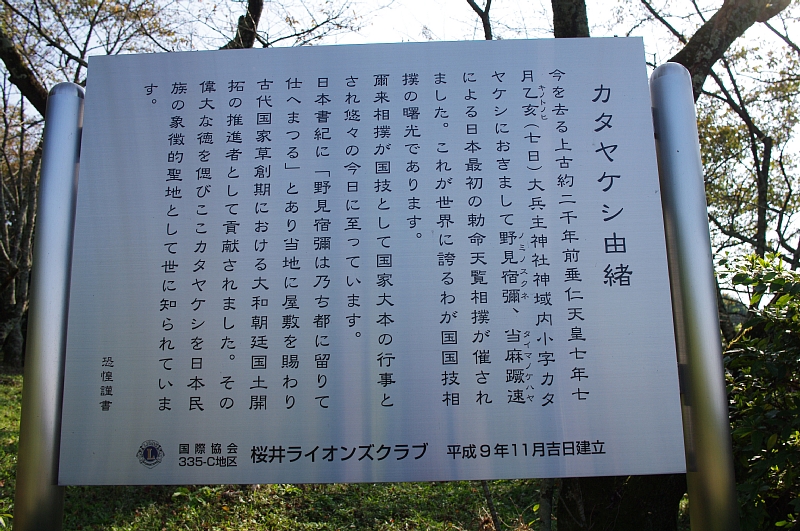 カタヤケシ由緒
今を去る上古約二千年前垂仁天皇七年七
月乙亥(七日)大兵主神社神域内小字カタ
キノトノヒ
ヤケシにおきまして野見宿彌、当麻蹶速
ノミノスクネ
タイマノケハヤ
による日本最初の勅命天覧相撲が催され
ました。これが世界に誇るわが国国技相
撲の曙光であります。
爾来相撲が国技として国家大本の行事と
され悠々の今日に至っています。
日本書紀に「野見宿彌は乃ち都に留りて
仕へまつる」とあり当地に屋敷を賜わり
古代国家草創期における大和朝廷国土開
拓の推進者として貢献されました。その
偉大な徳を偲びここカタヤケシを日本民
族の象徴的聖地として世に知られていま
す。
恐惶謹書
国際協会
335-C地区
桜井ライオンズクラブ 平成9年11月吉日建立